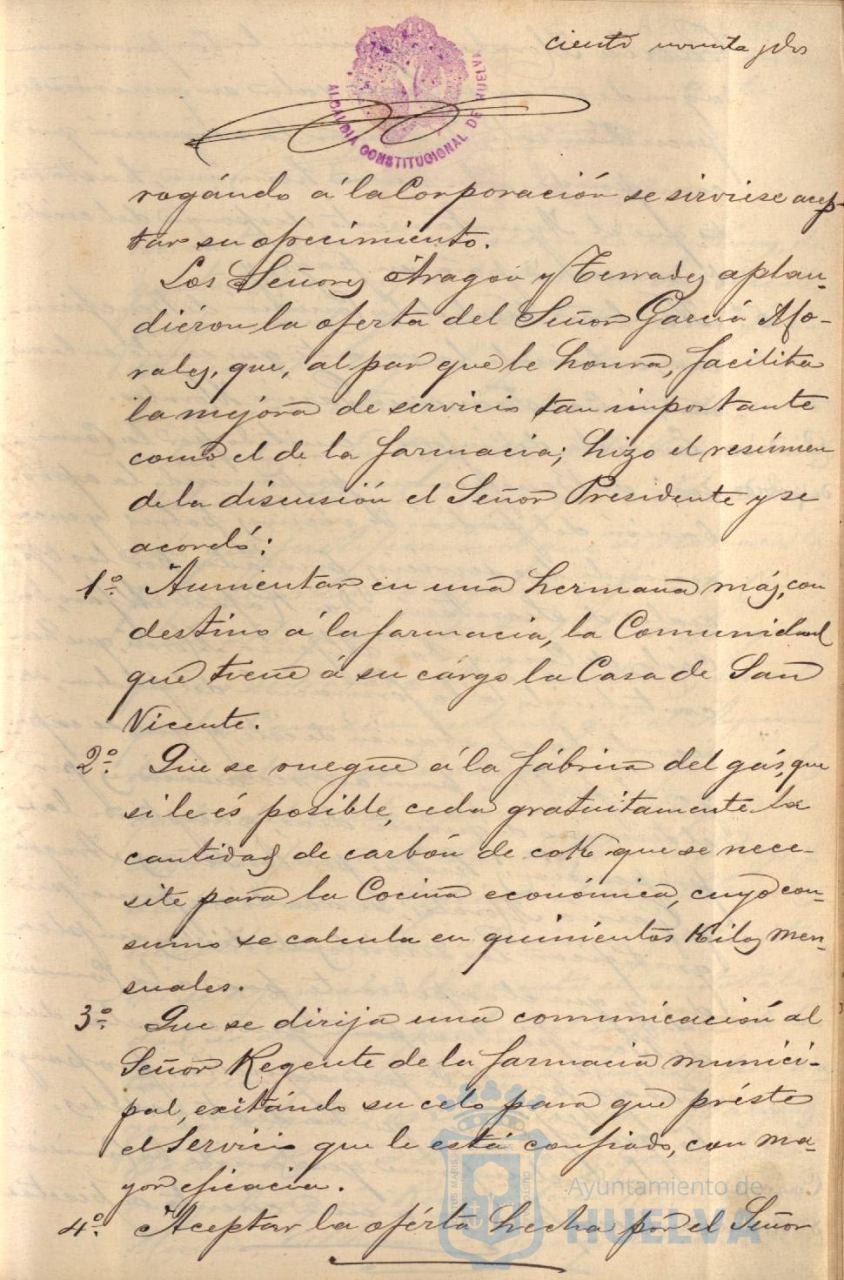 ciento noventa y dos
ALCALDIA CONSTITUCIONAL DE HUELVA
rogándo á la Corporación se sirviese acep-
tar su ofrecimiento.
Los Señores Aragon y Terrades aplau-
diéron la oferta del Señor García Mo-
rales, que, al par que le honra, facilita
la mejora de servicio tan importante
como el de la farmacia; hizo el resúmen
de la discusión el Señor Presidente y se
acordó:
1º. Aumentar en una hermana más, con
destino á la farmacia, la Comunidad
que tiene á su cárgo la Casa de San
Vicente.
2º. Que se ruegue á la fábrica del gás, que
si le és posible, ceda gratuitamente la
cantidad de carbón de cok que se nece-
site para la Cocina económica, cuyo con-
sumo se calcula en quinientos Kilos men-
suales.
3º. Que se dirija una comunicación al
Señor Regente de la farmacia munici-
pal, exitándo su celo para que préste
el Servicio que le está confiado, con ma-
yor eficacia.
4º. Aceptar la oférta hecha por el Señor
Ayuntamiento de
HUELVA